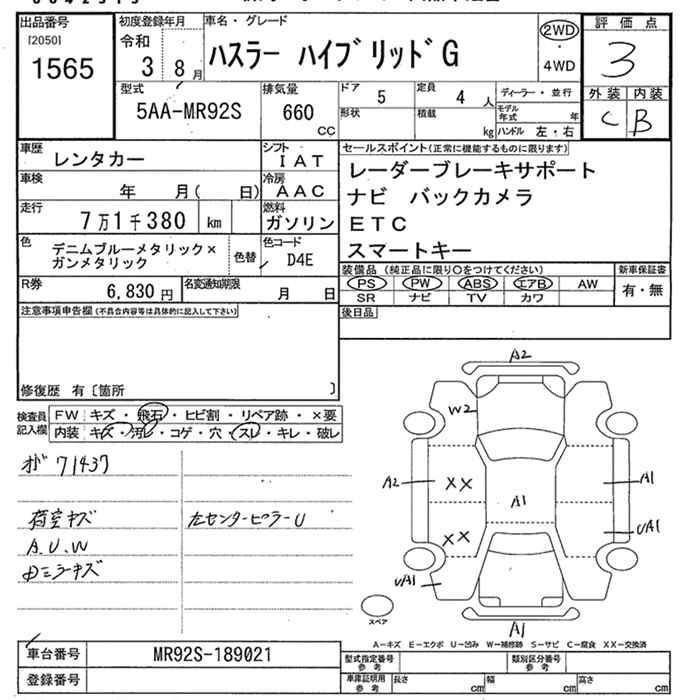 出品番号
[2050]
1565
初度登録年月
令和
3 8月
車名・グレード
ハスラー ハイブリッドG
2WD
・
4WD
評価点
3
外装 内装
C B
型式
5AA-MR92S
排気量
660
CC
ドア 5
定員 4 人
形状
積載 kg
ディーラー・並行
モデル年式 年
ハンドル 左・右
車歴 レンタカー
シフト IAT
車検 年 月( 日)
冷房 AAC
走行 7万1千380 km
燃料 ガソリン
色 デニムブルーメタリック×
ガンメタリック
色替
色コード D4E
R券 6,830円
名変通知期限 月 日
セールスポイント(正常に機能するものに限ります)
レーダーブレーキサポート
ナビ バックカメラ
ETC
スマートキー
装備品 (純正品に限り○をつけてください)
PS PW ABS エアB AW
SR ナビ TV カワ
新車保証書
有・無
後日品
注意事項申告欄(不具合内容等は具体的に記入して下さい)
修復歴 有〔箇所 〕
検査員
記入欄
FW キズ・飛石・ヒビ割・リペア跡・×要
内装 キズ・汚レ・コゲ・穴・スレ・キレ・破レ
71437
荷室キズ
左センターピラーU
A.U.W
ミラーキズ
A2
W2
A2
XX
A1
A1
XX
UA1
UA1
A1
スペア
A-キズ E-エクボ U-凹み W-補修跡 S-サビ C-腐食 XX-交換済
車台番号 MR92S-189021
登録番号
型式指定番号
参考
類別区分番号
参考
車庫証明用
参考
長さ cm
幅 cm
高さ cm